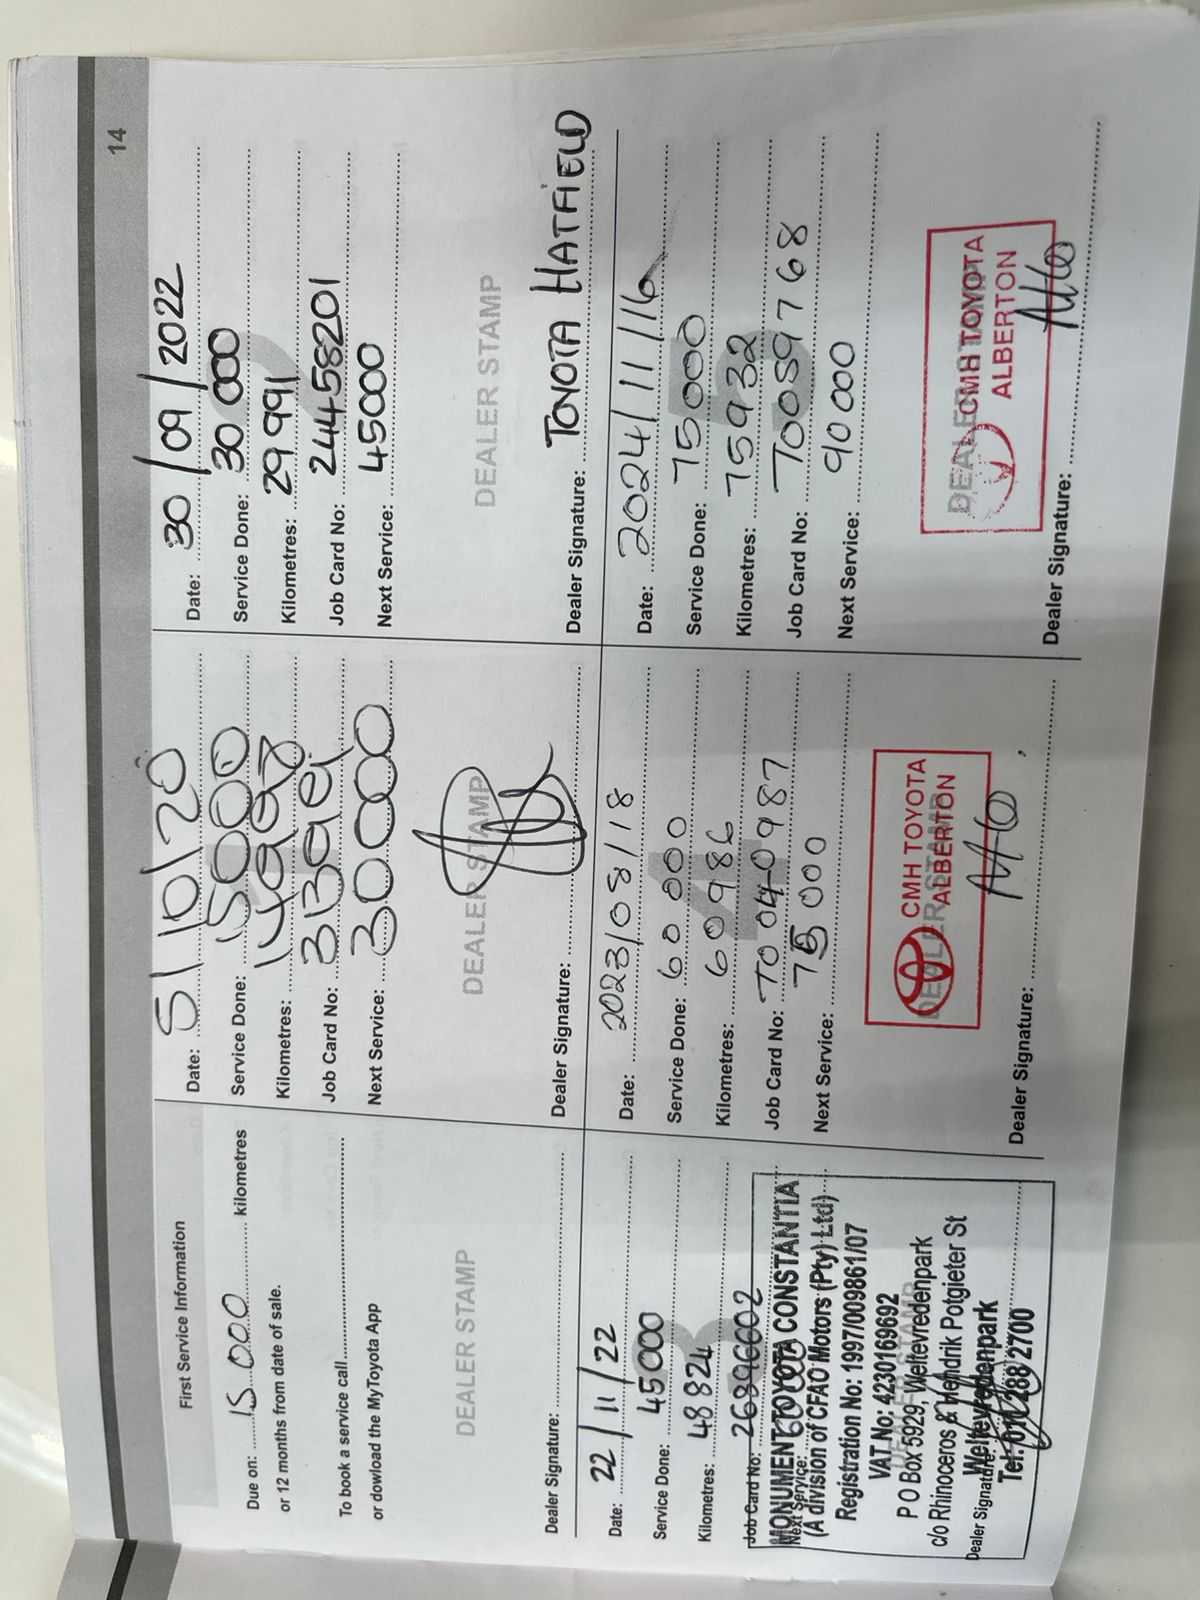 14
First Service Information
Due on: 15 000 kilometres
or 12 months from date of sale.
To book a service call
or dowload the MyToyota App
DEALER STAMP
Dealer Signature:
Date: 5/10/20
Service Done: 15000
Kilometres: 14998
Job Card No:
Next Service: 30000
DEALER STAMP
Dealer Signature:
Date: 30/09/2022
Service Done: 30 000
Kilometres: 29 991
Job Card No: 24458201
Next Service: 45000
DEALER STAMP
Dealer Signature: TOYOTA HATFIELD
Date: 22/11/22
Service Done: 45000
Kilometres: 48824
Job Card No: 26896602
Next Service: 60000
MONUMENT TOYOTA CONSTANTIA
(A division of CFAO Motors (Pty) Ltd)
Registration No: 1997/009861/07
VAT No: 4230169692
P O Box 5929, Weltevredenpark
c/o Rhinoceros & Hendrik Potgieter St
Weltevredenpark
Tel: 011 288 2700
DEALER STAMP
Dealer Signature:
Date: 2023/08/18
Service Done: 60 000
Kilometres: 60986
Job Card No: T0040987
Next Service: 75 000
DEALER STAMP
CMH TOYOTA
ALBERTON
Dealer Signature:
Date: 2024/11/16
Service Done: 75000
Kilometres: 75932
Job Card No: T0059768
Next Service: 90 000
DEALER STAMP
CMH TOYOTA
ALBERTON
Dealer Signature: